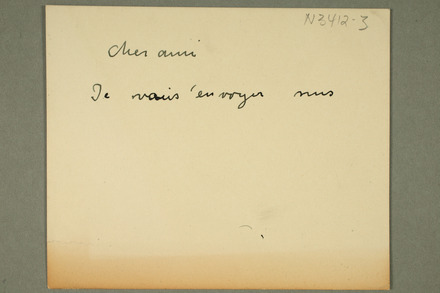 N3412-3
cher ami
Je vais envoyer